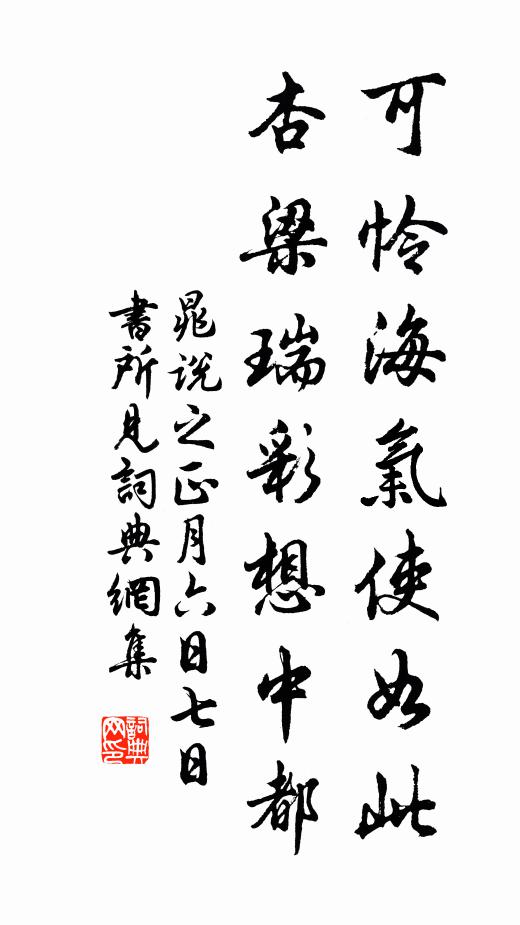 可怜海氣使如此
杏梁瑞彩想中都
晁说之正月六日七日
書所見詞典網集
詞典网印